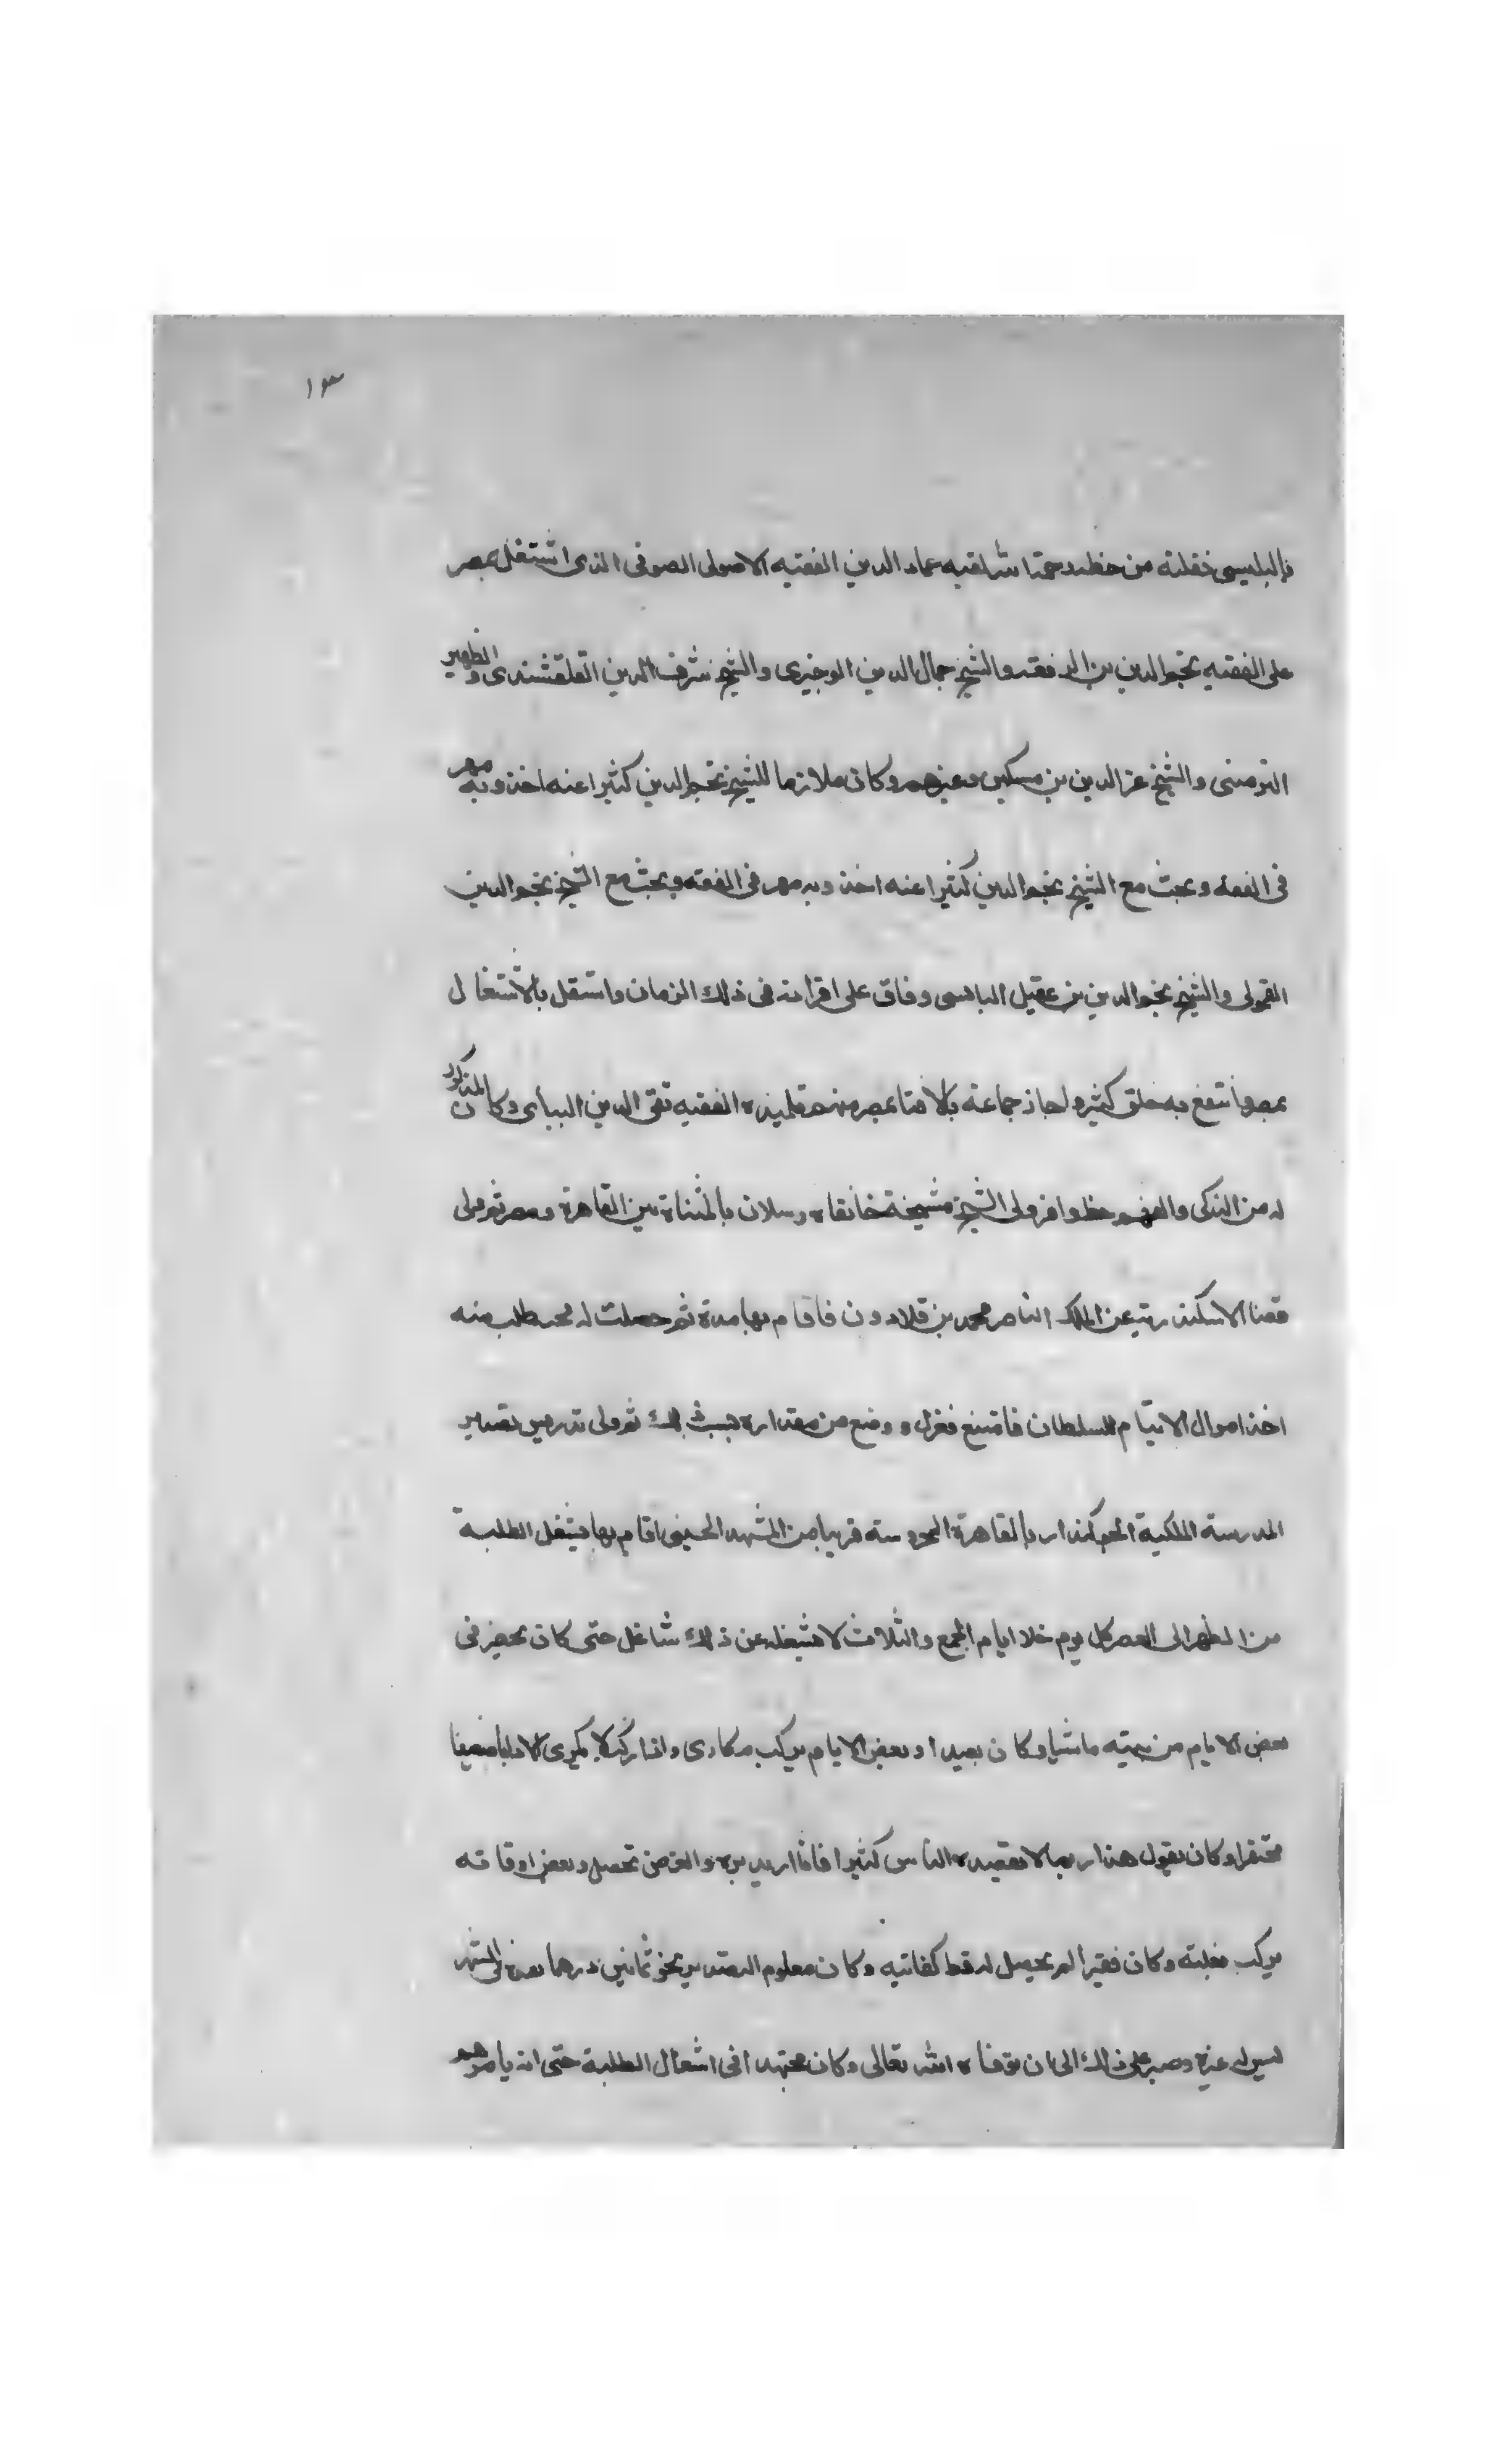 ١٣
بالبلبيسى فنقلته من خطه رحمة الله لقبه عماد الدين الفقيه الاصولى الصوفى الذى اشتغل بمصر
على الفقيه نجم الدين بن الرفعه والشيخ جمال الدين الوجيزى والشيخ شرف الدين القلقشندى والظهير
التزمنتى والشيخ عز الدين بن مسكين وغيرهم وكان ملازما للشيخ نجم الدين كثيرا عنه اخذ وبه مهر
فى الفقه وبحث مع الشيخ نجم الدين كثيرا عنه اخذ وبه مهر فى الفقه وبحث مع الشيخ نجم الدين
القمولى والشيخ نجم الدين بن عقيل البالسى وفاق على اقرانه فى ذلك الزمان واشتغل بالاشتغال
بمصر وانتفع به خلق كثير واجاز جماعة بالافتا بمصر منهم تلميذه الفقيه تقى الدين الببائى وكان المذكور
له من الذكى والفهم حظ وافر ولى الشيخ مشيخة خانقاه رسلان بالمثناة بين القاهرة ومصر ثم ولى
قضا الاسكندرية عن الملك الناصر محمد بن قلاوون فاقام بها مدة ثم حصلت له محنه طلب منه
اخذ اموال الايتام للسلطان فامتنع فعزل ووضع من مقداره بسبب ذلك ثم ولى تدريس تصدير
المدرسة الملكية الجوكندار بالقاهرة المحروسة قريبا من المشهد الحسينى اقام بها يشغل الطلبة
من الظهر الى العصر كل يوم خلا ايام الجمع والثلاث لا يشغله عن ذلك شاغل حتى كان يحضر فى
بعض الايام من بيته ماشيا وكان بعيدا وبعض الايام يركب مكارى واذا ركب لا يكرى الا دابا ضعيفا
محتقرا وكان يقول هذا ربما لا يقصده الناس كثيرا فانا اريد بره والغرض يحصل وبعض اوقاته
يركب بغلته وكان فقيرا لم يحصل له قط كفايته وكان معلوم التصدير نحو ثمانين درهما فى الشهر
ليس له غيره وصبر على ذلك الى ان توفاه الله تعالى وكان مجتهدا فى اشغال الطلبة حتى انه يامرهم